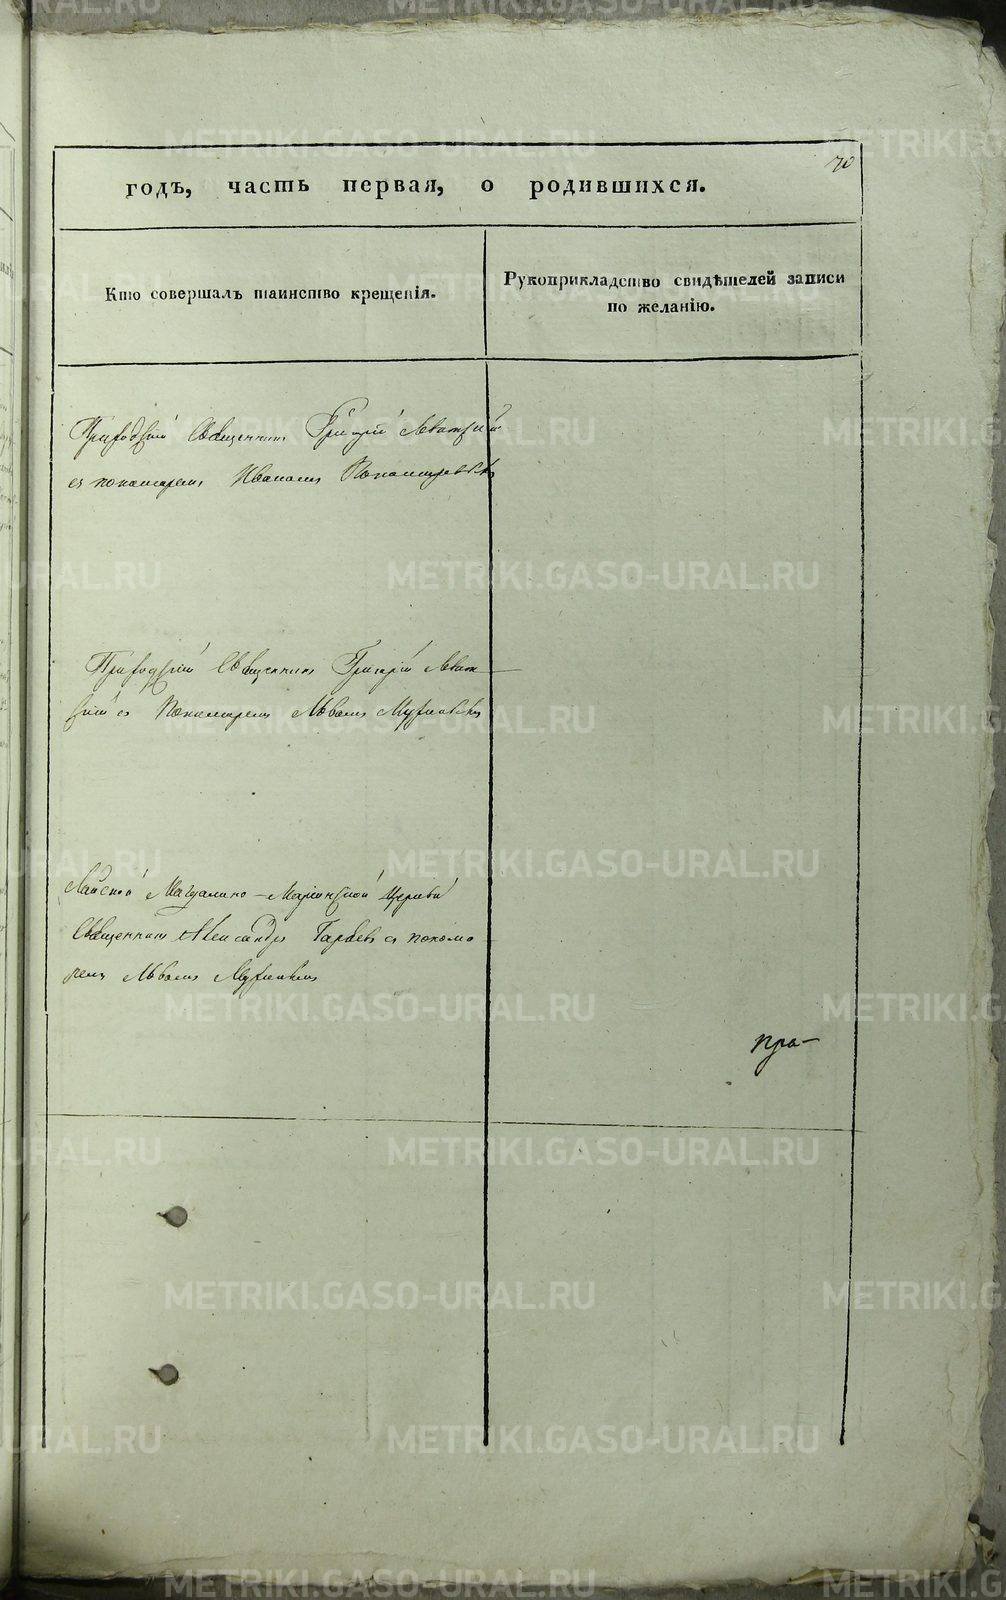 70
годъ, часть первая, о родившихся.
Кто совершалъ таинство крещенія.
Рукоприкладство свидѣтелей записи
по желанію.
Приходскій Священникъ Григорій
съ пономаремъ Иваномъ
Приходскій Священникъ Григорій
скій съ Пономаремъ Львомъ
Лайской Магдалино-Маріинской Церкви
Священникъ Александръ съ понома
ремъ Львомъ
пра-
METRIKI.GASO-URAL.RU